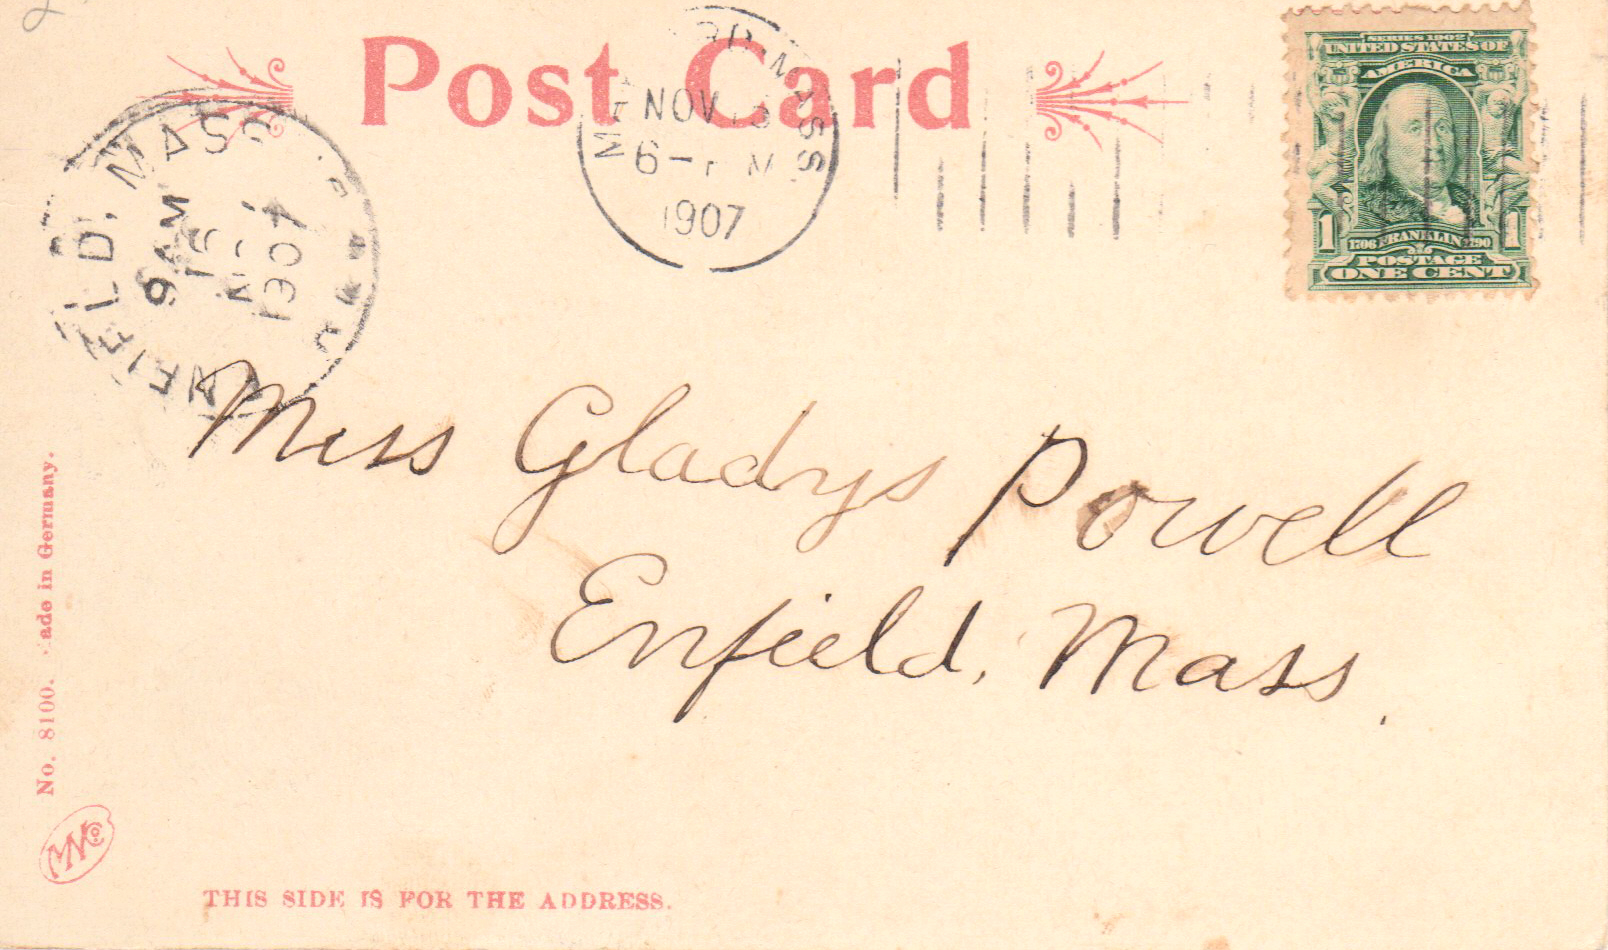 Post Card
NOV
6-
1907
MASS
SERIES 1902
UNITED STATES OF
AMERICA
1 1
1706 FRANKLIN 1790
POSTAGE
ONE CENT
ENFIELD, MASS
9 AM
16
NOV
1907
Miss Gladys Powell
Enfield, Mass.
No. 8100. ade in Germany.
MNCo
THIS SIDE IS FOR THE ADDRESS.